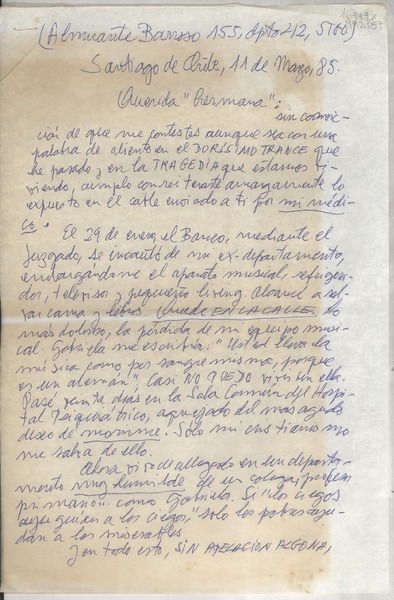 (Almirante Barroso 155, dpto 42, Stgo)
Santiago de Chile, 11 de Marzo, 85.
Querida "hermana":
sin convic-
ción de que me contestes aunque sea con una
palabra de aliento en el DURÍSIMO TRANCE que
he pasado, y en la TRAGEDIA que estamos vi-
viendo, cumplo con reiterarte amargamente lo
expuesto en el cable enviado a ti por mi médi-
co.
El 29 de enero, el Banco, mediante el
Juzgado, se incautó de mi ex-departamento,
embargándome el aparato musical, refrigera-
dor, televisor y pequeño living. Alcancé a sal-
var cama y libros. Quedé EN LA CALLE. Lo
más doloroso, la pérdida de mi equipo musi-
cal. Gabriela me escribía: "Usted lleva la
música como por sangre misma, porque
es un alemán". Casi NO PUEDO vivir sin ella.
Pasé veinte días en la Sala Común del Hospi-
tal Psiquiátrico, aquejado del más agudo
deseo de morirme. Sólo mi cristianismo
me salva de ello.
Ahora vivo de allegado en un departa-
mento muy humilde de un colega, profesor
primario.. como Gabriela. Si "los ciegos
guían a los ciegos," solo los pobres ayu-
dan a los miserables.
Y en todo esto, SIN APELACIÓN ALGUNA,